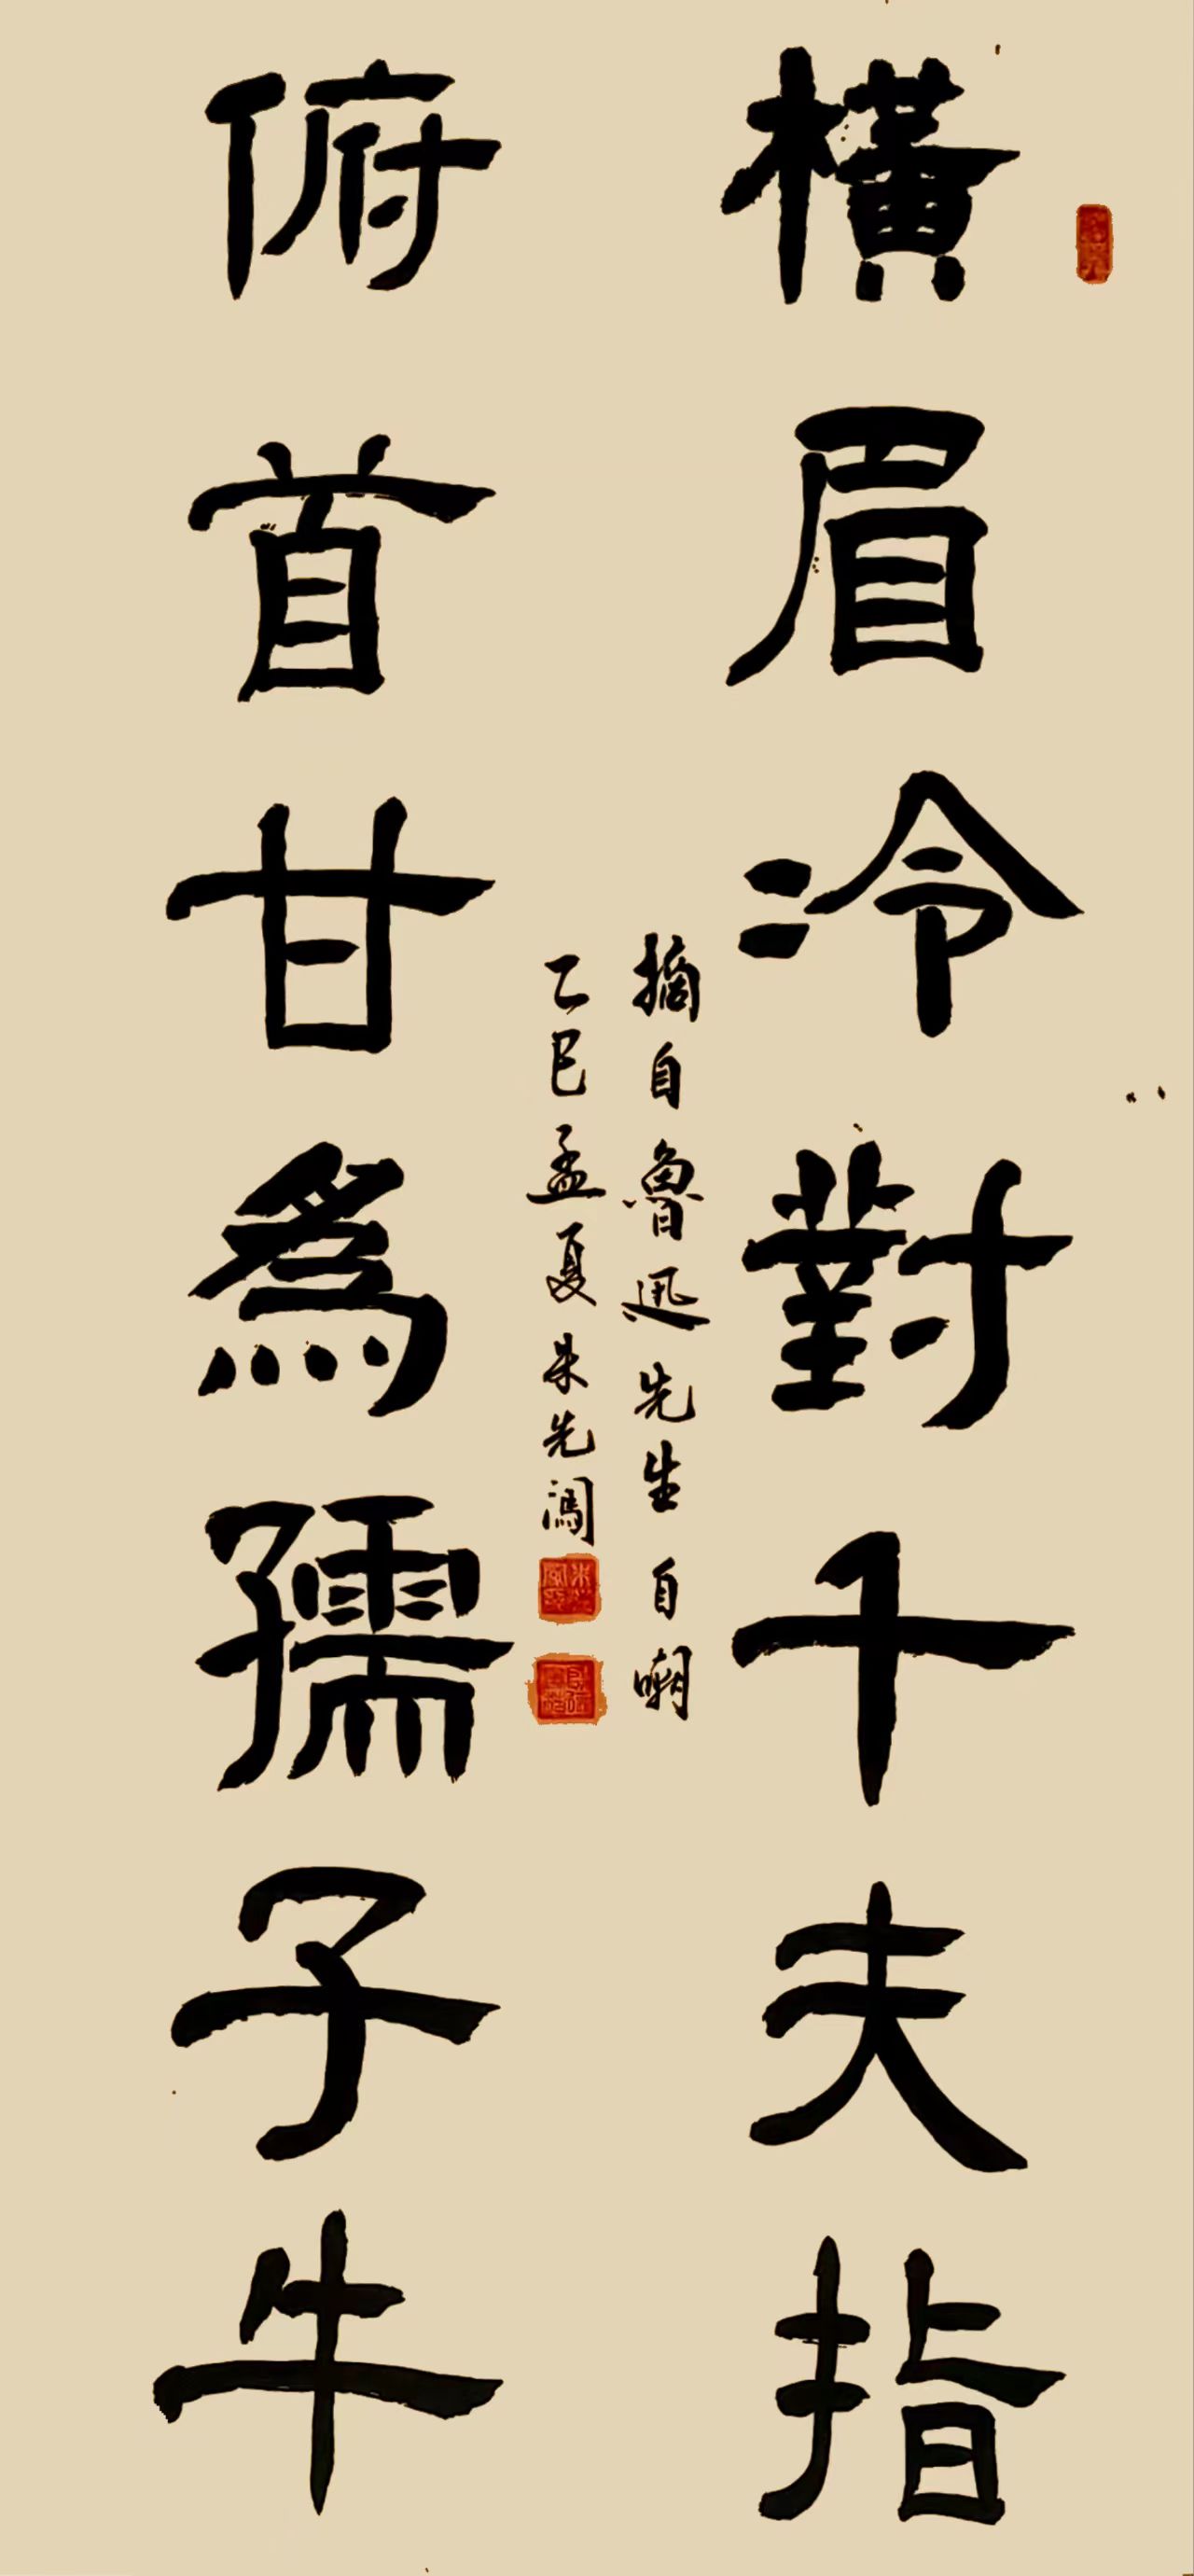 橫眉冷對千夫指
俯首甘為孺子牛
摘自魯迅先生自嘲
乙巳孟夏朱先闖